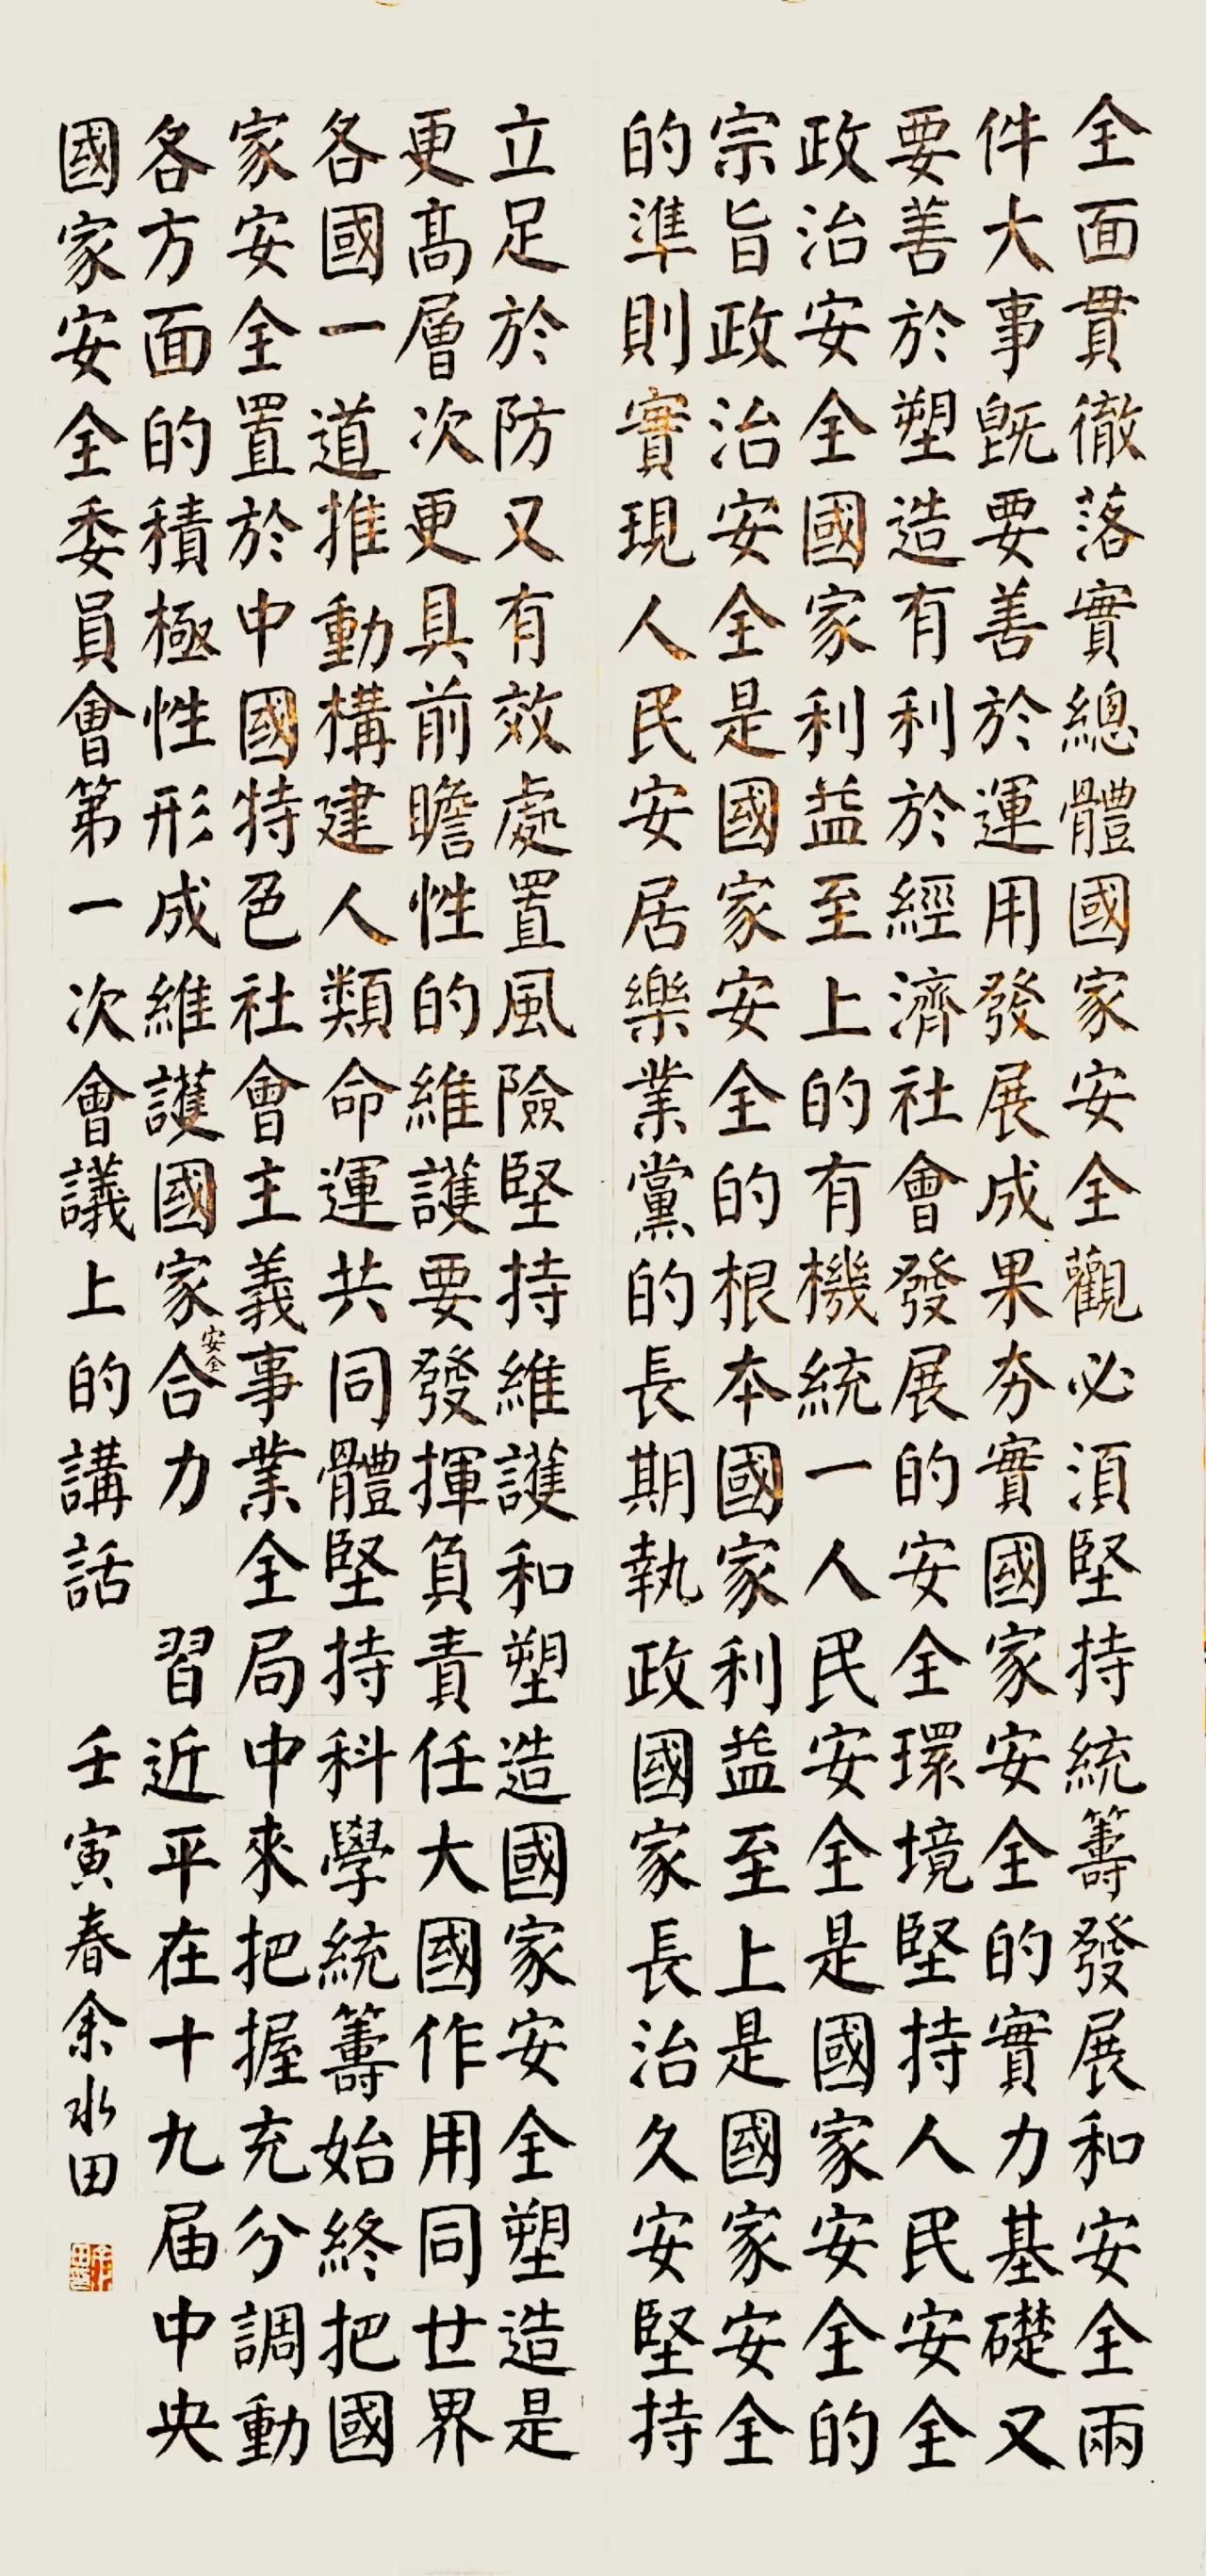 全面貫徹落實總體國家安全觀必湏堅持統籌發展和安全兩
件大事既要善於運用發展成果夯實國家安全的實力基礎又
要善於塑造有利於經濟社會發展的安全環境堅持人民安全
政治安全國家利益至上的有機統一人民安全是國家安全的
宗旨政治安全是國家安全的根本國家利益至上是國家安全
的準則實現人民安居樂業黨的長期執政國家長治久安堅持
立足於防又有效處置風險堅持維護和塑造國家安全塑造是
更髙層次更具前瞻性的維護要發揮負責任大國作用同世界
各國一道推動構建人類命運共同體堅持科學統籌始終把國
家安全置於中國特色社會主義事業全局中來把握充分調動
各方面的積極性形成維護國家安全合力 習近平在十九届中央
國家安全委員會第一次會議上的講話 壬寅春余水田